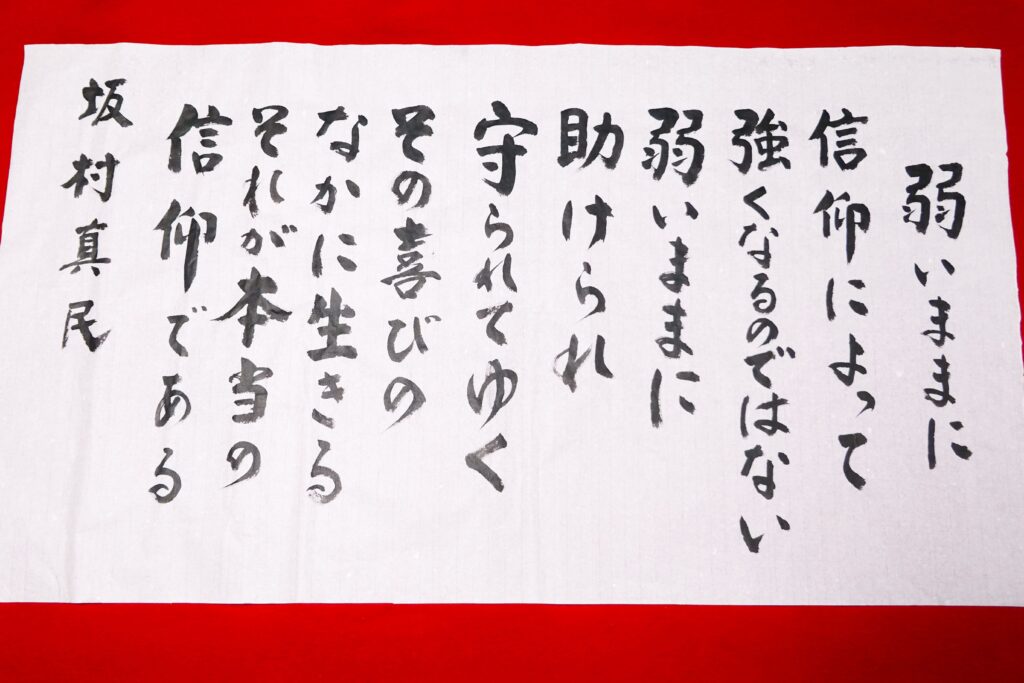 弱いままに
信仰によって
強くなるのではない
弱いままに
助けられ
守られてゆく
その喜びの
なかに生きる
それが本当の
信仰である
坂村真民